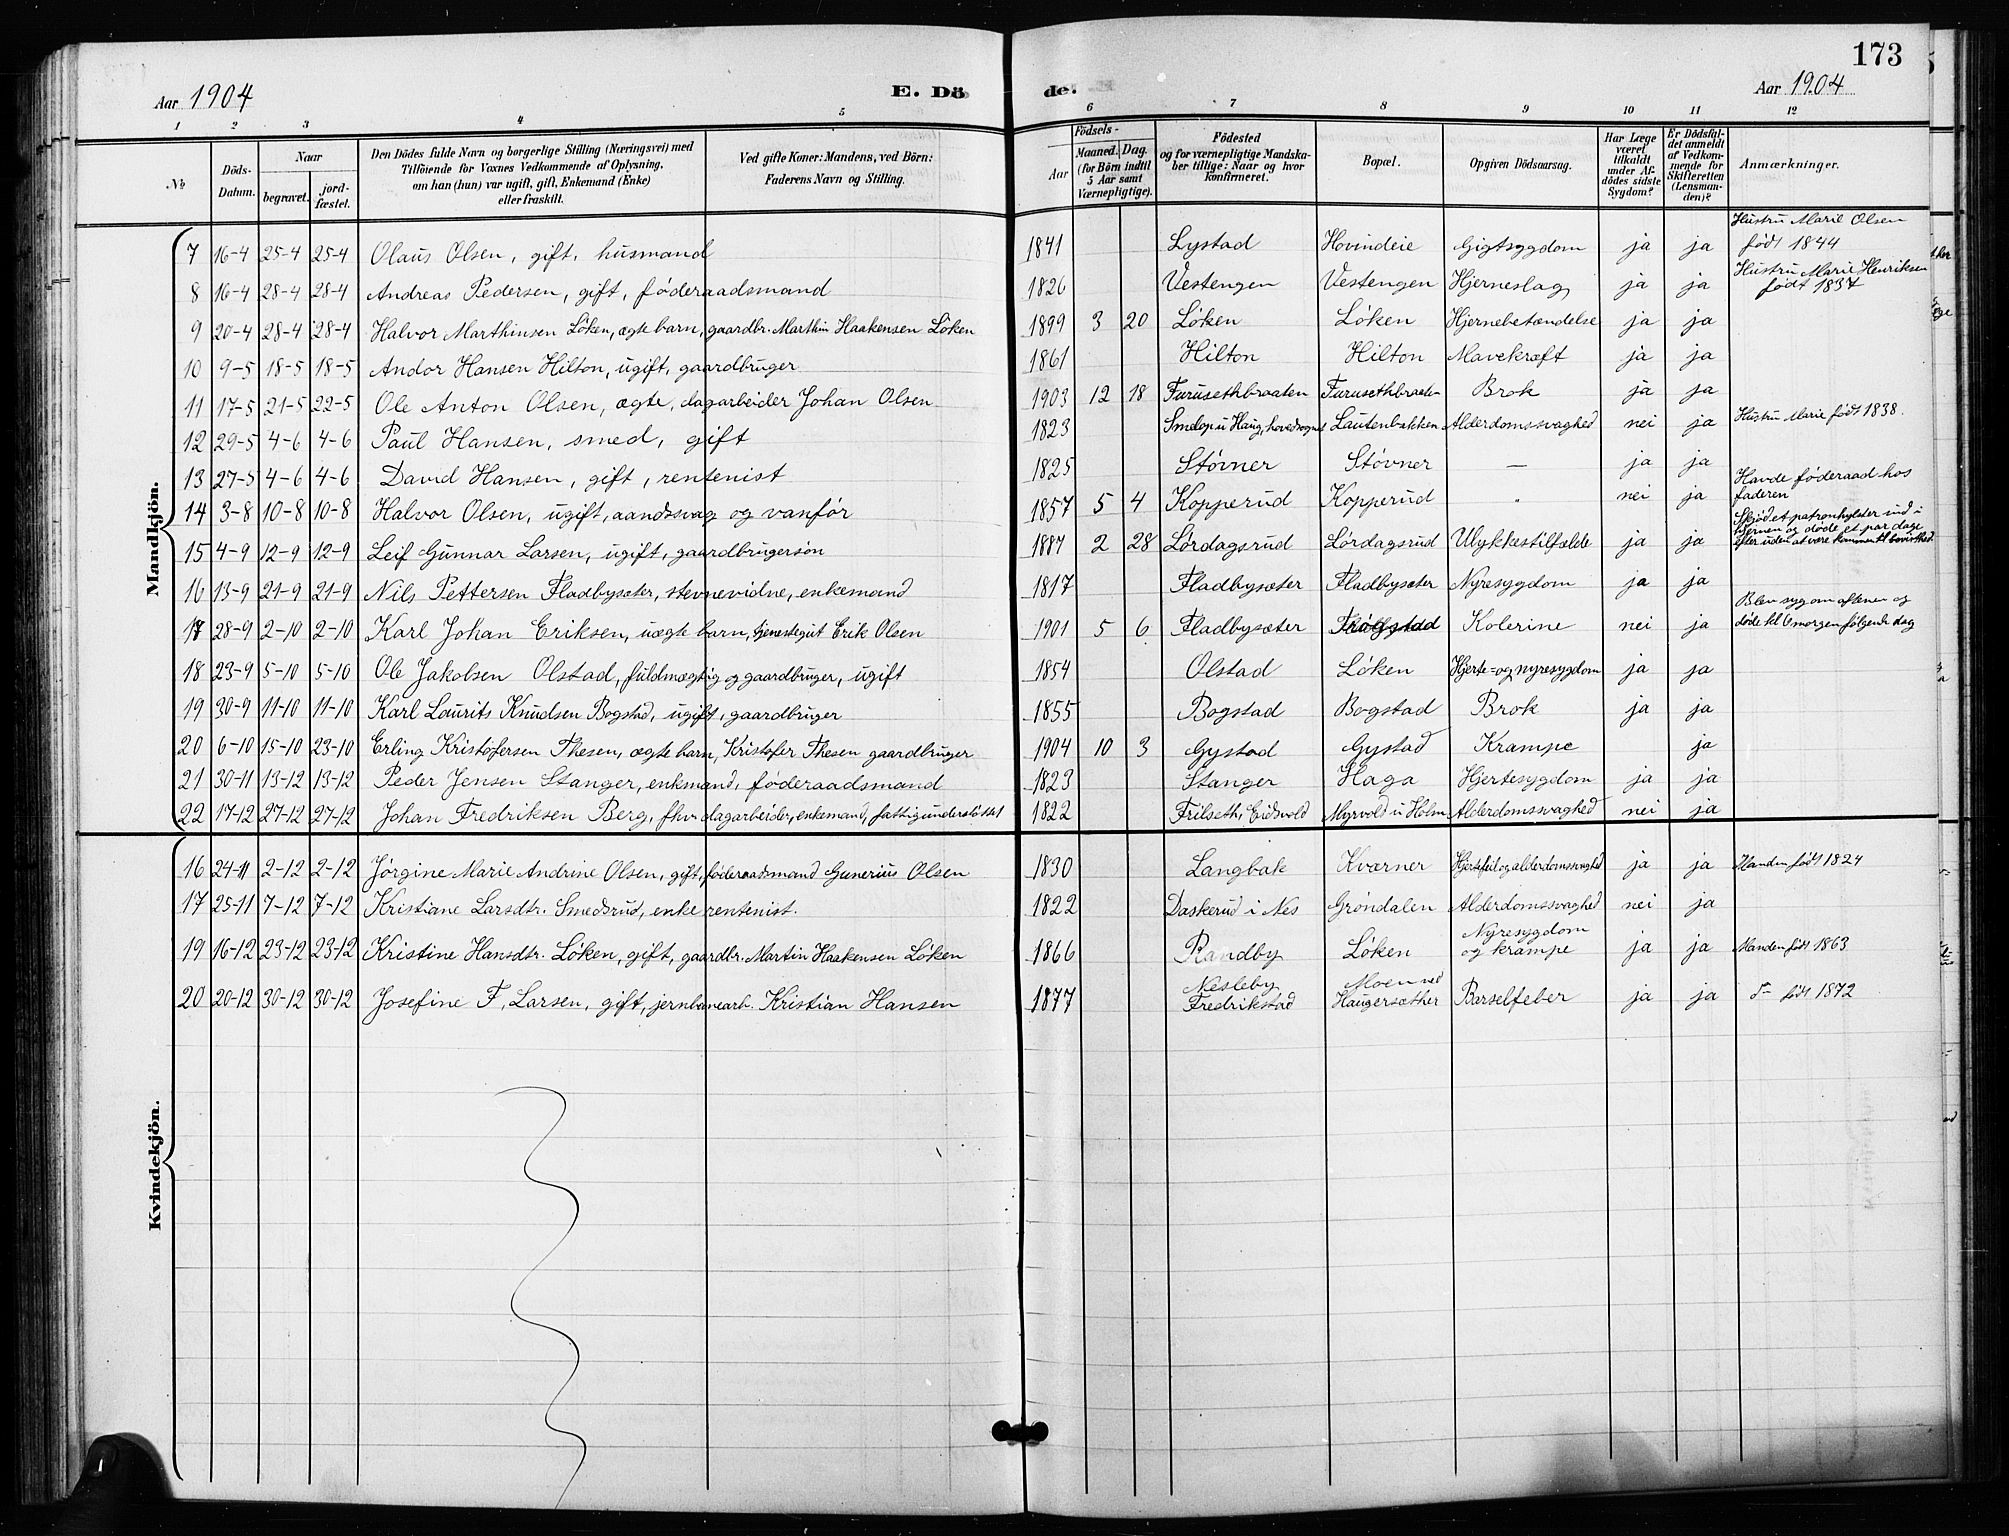 173
Aar 1904 E. Dö de. Aar 1904
1 2 3 4 5 6 7 8 9 10 11 12
№ Döds-Datum. Naar begravet. jord-fæstet. Den Dödes fulde Navn og borgerlige Stilling (Næringsvei) med Tilföiende for Voxnes Vedkommende af Oplysning, om han (hun) var ugift, gift, Enkemand (Enke) eller fraskilt. Ved gifte Koner: Mandens, ved Börn: Faderens Navn og Stilling. Födsels- Aar Maaned. Dag. (for Börn indtil 5 Aar samt Værnepligtige). Födested og for værnepligtige Mandska-ber tillige: Naar og hvor konfirmeret. Bopæl. Opgiven Dödsaarsag. Har Læge været tilkaldt under Af-dödes sidste Sygdom? Er Dödsfal-det anmeldt af Vedkom-mende for Skifteretten (Lensman-den)? Anmærkninger.
Mandkjön.
7 16-4 25-4 25-4 Olaus Olsen, gift, husmand 1841 Lystad Hovindeie Gigtsygdom ja ja Hustru Marie Olsen født 1844
8 16-4 28-4 28-4 Andreas Pedersen, gift, føderaadsmand 1826 Vestengen Vestengen Hjerneslag ja ja Hustru Marie Henriksen født 1837
9 20-4 28-4 28-4 Halvor Marthinsen Löken, ægte barn, gaardbr. Marthin Haakensen Löken 1899 3 20 Löken Löken Hjernebetændelse ja ja
10 9-5 18-5 18-5 Andor Hansen Hilton, ugift, gaardbruger 1861 Hilton Hilton Mavekræft ja ja
11 17-5 21-5 22-5 Ole Anton Olsen, ægte, dagarbeider Johan Olsen 1903 12 18 Furusethbraaten Furusethbraaten Brok ja ja
12 29-5 4-6 4-6 Paul Hansen, smed, gift 1823 u Haug, hovedsognet Lautenbakken Alderdomssvaghed nei ja Hustru Marie født 1838.
13 27-5 4-6 4-6 David Hansen, gift, rentenist 1825 Støvner Støvner — ja ja
14 3-8 10-8 10-8 Halvor Olsen, ugift, aandssvag og vanför 1857 5 4 Kopperud Kopperud " nei ja Havde føderaad hos faderen
15 4-9 12-9 12-9 Leif Gunnar Larsen, ugift, gaardbrugersön 1887 2 28 Lørdagsrud Lørdagsrud Ulykkestilfælde ja ja Skjød et patronhylster ind i hjernen og døde et par dage efter uden at være kommen til bevisthed
16 13-9 21-9 21-9 Nils Pettersen Fladbysæter, stevnevidne, enkemand 1817 Fladbysæter Fladbysæter Nyresygdom ja ja
17 28-9 2-10 2-10 Karl Johan Eriksen, uægte barn, tjenestegut Erik Olsen 1901 5 6 Fladbysæter Kolerine nei ja Blev syg om aftenen og døde kl 6 morgen følgende dag
18 23-9 5-10 5-10 Ole Jakobsen Olstad, fuldmægtig og gaardbruger, ugift 1854 Olstad Löken Hjerte- og nyresygdom ja ja
19 30-9 11-10 11-10 Karl Laurits Knudsen Bogstad, ugift, gaardbruger 1855 Bogstad Bogstad Brok ja ja
20 6-10 15-10 23-10 Erling Kristofersen Thesen, ægte barn, Kristofer Thesen gaardbruger 1904 10 3 Gystad Gystad Krampe ja
21 30-11 13-12 13-12 Peder Jensen Stanger, enkmand, føderaadsmand 1823 Stanger Haga Hjertesygdom ja ja
22 17-12 27-12 27-12 Johan Fredriksen Berg, fhv. dagarbeider, enkemand, fattigunderstöttet 1822 Frilseth, Eidsvold Myrvold u Holm Alderdomssvaghed nei ja
Kvindekjön.
16 24-11 2-12 2-12 Jørgine Marie Andrine Olsen, gift, føderaadsmand Gunerius Olsen 1830 Langbak Kværner Hjertefeil og alderdomssvaghed ja ja Manden født 1824
17 25-11 7-12 7-12 Kristiane Larsdtr. Smedsrud, enke rentenist. 1822 Daskerud i Nes Gröndalen Alderdomssvaghed nei ja
19 16-12 23-12 23-12 Kristine Hansdtr. Löken, gift, gaardbr. Martin Haakensen Löken 1866 Randby Löken Nyresygdom og krampe ja ja Manden født 1863
20 20-12 30-12 30-12 Josefine F. Larsen, gift, jernbanearb. Kristian Hansen 1877 Nesleby Fredrikstad Moen ved Haugersæther Barselfeber ja ja født 1872